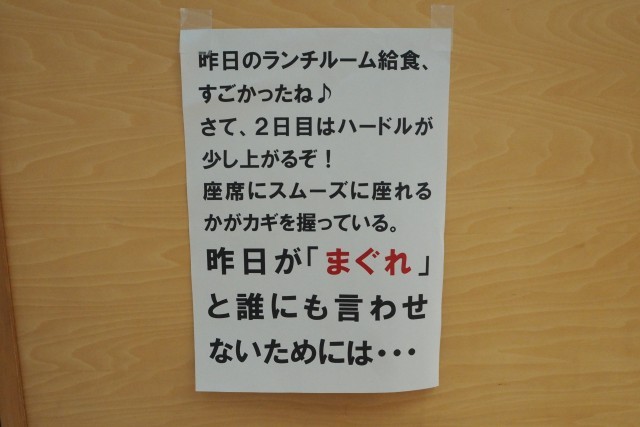 昨日のランチルーム給食、
すごかったね♪
さて、２日目はハードルが
少し上がるぞ！
座席にスムーズに座れる
かがカギを握っている。
昨日が「まぐれ」
と誰にも言わせ
ないためには・・・